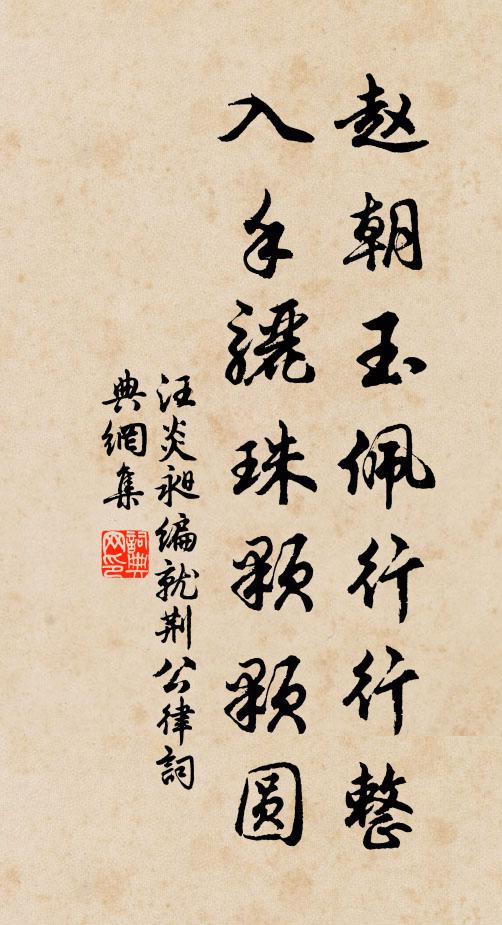 赵朝玉佩行行整
入手骊珠颗颗圆
汪炎昶编就荆公律詞
典網集
詞典
网印